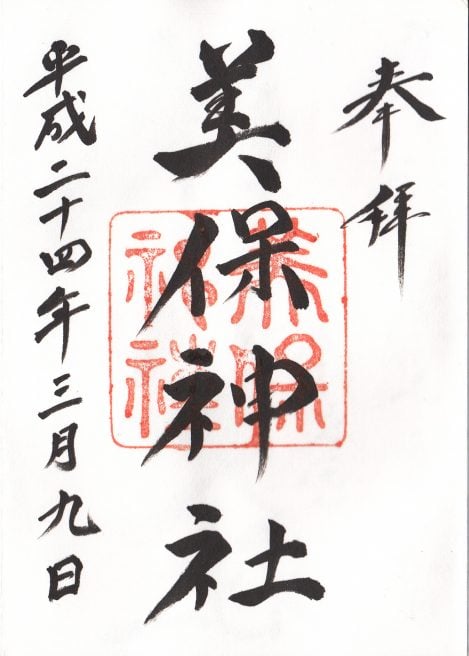 奉拝
美保神社
平成二十四年三月九日